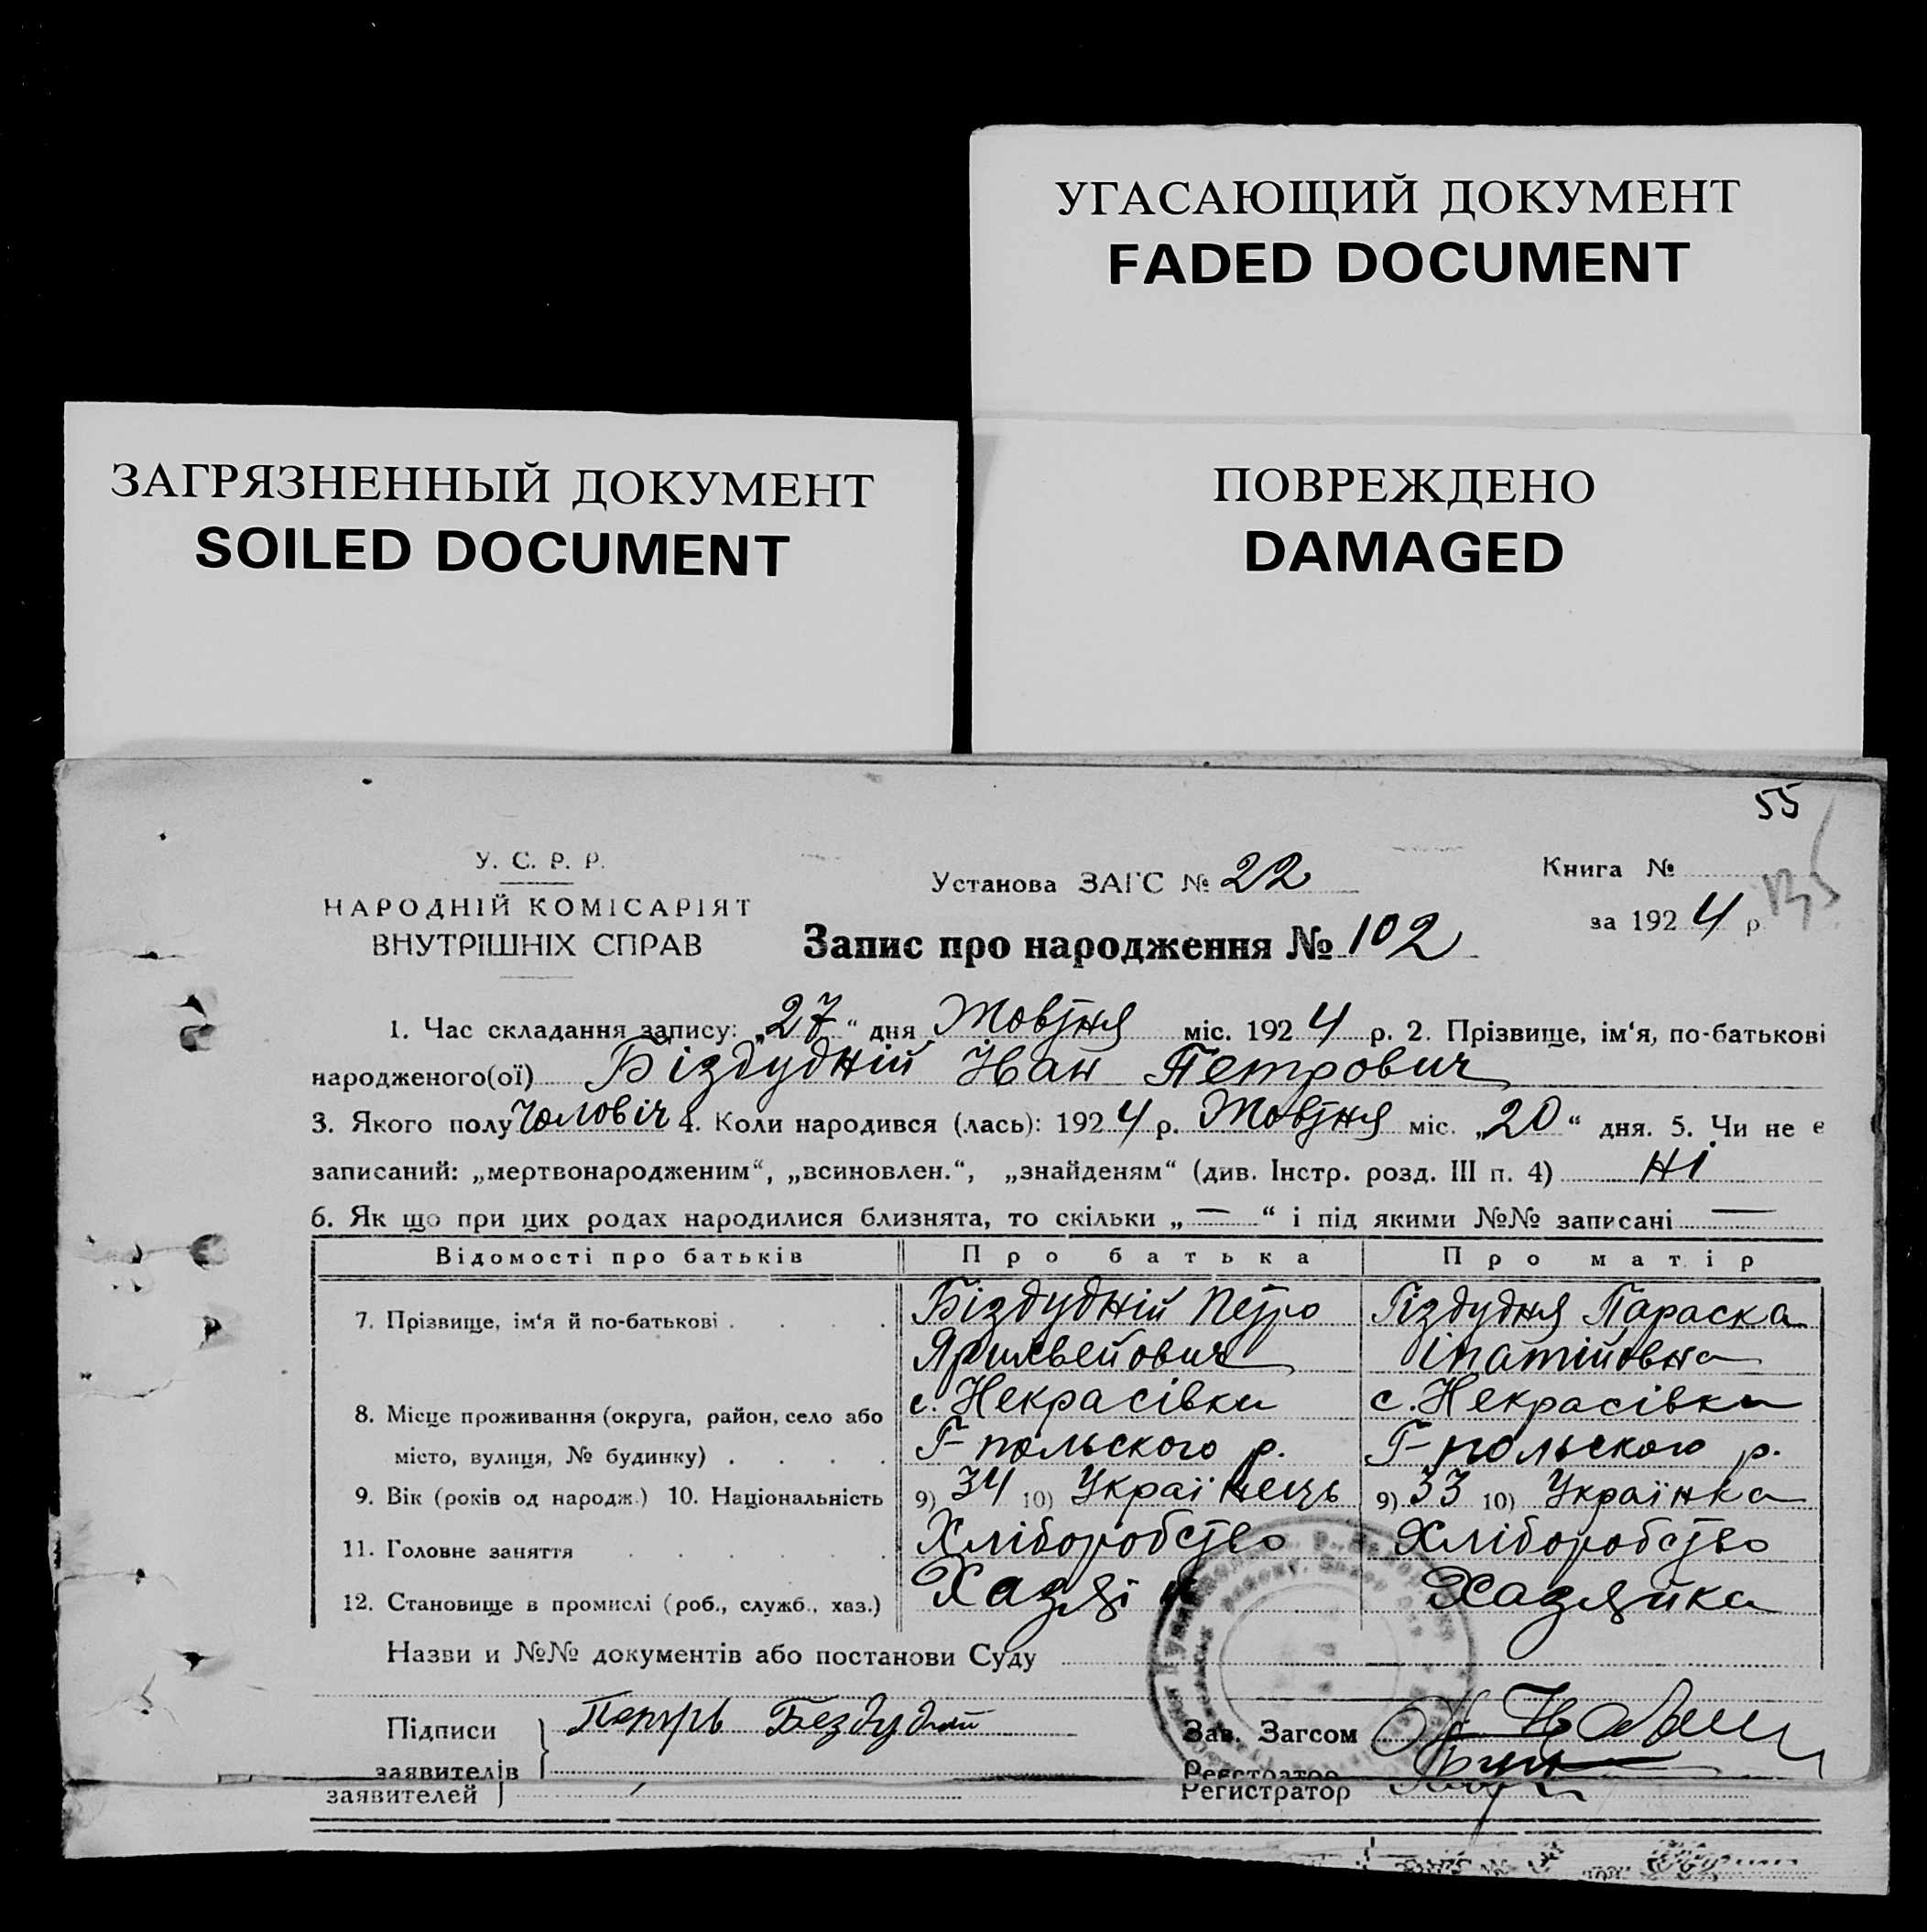 УГАСАЮЩИЙ ДОКУМЕНТ
FADED DOCUMENT
ЗАГРЯЗНЕННЫЙ ДОКУМЕНТ
SOILED DOCUMENT
ПОВРЕЖДЕНО
DAMAGED
55
У. С. Р. Р.
НАРОДНІЙ КОМІСАРІЯТ
ВНУТРІШНІХ СПРАВ
Установа ЗАГС № 22
Запис про народження № 102
Книга №
за 1924 р
1. Час складання запису: „27“ дня Жовтня міс. 1924 р. 2. Прізвище, ім‘я, по-батькові
народженого(ої) Біздудній Іван Петрович
3. Якого полу Чоловіч 4. Коли народився (лась): 1924 р. Жовтня міс. „20“ дня. 5. Чи не є
записаний: „мертвонародженим“, „всиновлен.“, „знайденям“ (див. Інстр. розд. III п. 4) Ні
6. Як що при цих родах народилися близнята, то скільки „—“ і під якими №№ записані —
Відомості про батьків Про батька Про матір
7. Прізвище, ім‘я й по-батькові . . . . Біздудній Петро Біздудня Параска
Іпатійовна
с. Некрасівки с. Некрасівки
8. Місце проживання (округа, район, село або
місто, вулиця, № будинку) . . . . Г-польского р. Г-польского р.
9. Вік (років од народж.) 10. Національність 9) 34 10) Українець 9) 33 10) Українка
11. Головне заняття . . . . . . Хліборобство Хліборобство
12. Становище в промислі (роб., служб., хаз.) Хазяїн Хазяйка
Назви и №№ документів або постанови Суду
Підписи
заявителів } Петръ Бездудный
Зав. Загсом
Реєстратор
заявителей
Регистратор